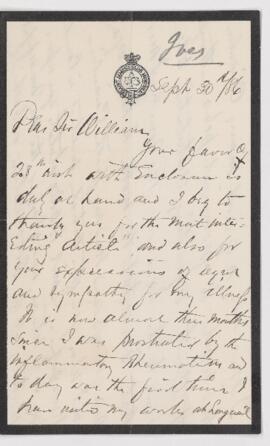 Ives
Sept 30th/86
Dear Sir William
Your favor of
28th inst with Enclosure is
duly at hand and I beg to
thank you for the most inter-
esting "Article" and also for
your expressions of regret
and sympathy for my illness
It is now almost three months
since I was prostrated by the
inflammatory Rheumatism and
to day was the first time I
have visited my works at Longueuil